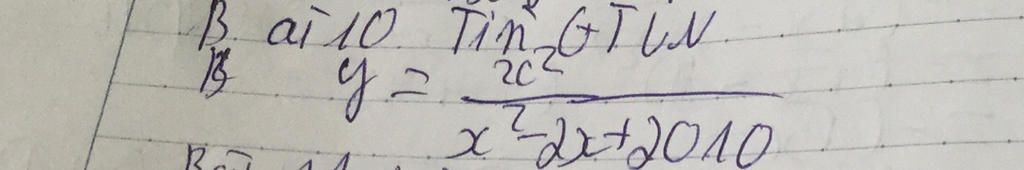 Bài 10 Tìm GTLN
B y = x²/(x²-2x+2010)